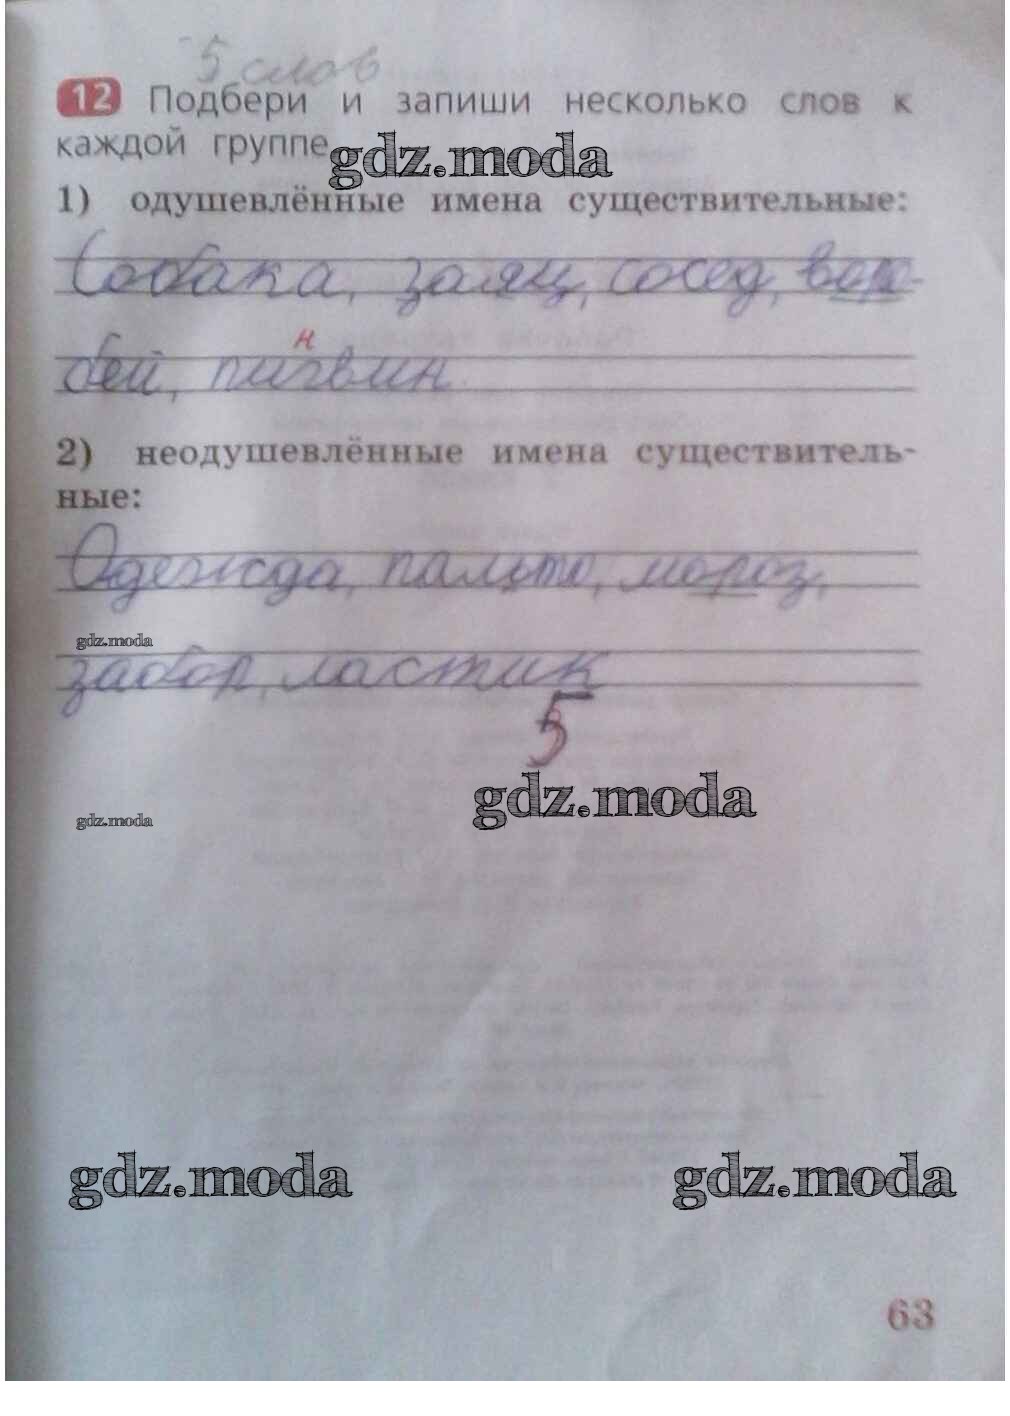 5 слов
12 Подбери и запиши несколько слов к
каждой группе.
gdz.moda
1) одушевлённые имена существительные:
Собака, заяц, сосед, воро-
н
бей, пигвин
2) неодушевлённые имена существитель-
ные:
Одежда, пальто, мороз,
gdz.moda
забор, ластик
5
gdz.moda
gdz.moda
gdz.moda
gdz.moda
63